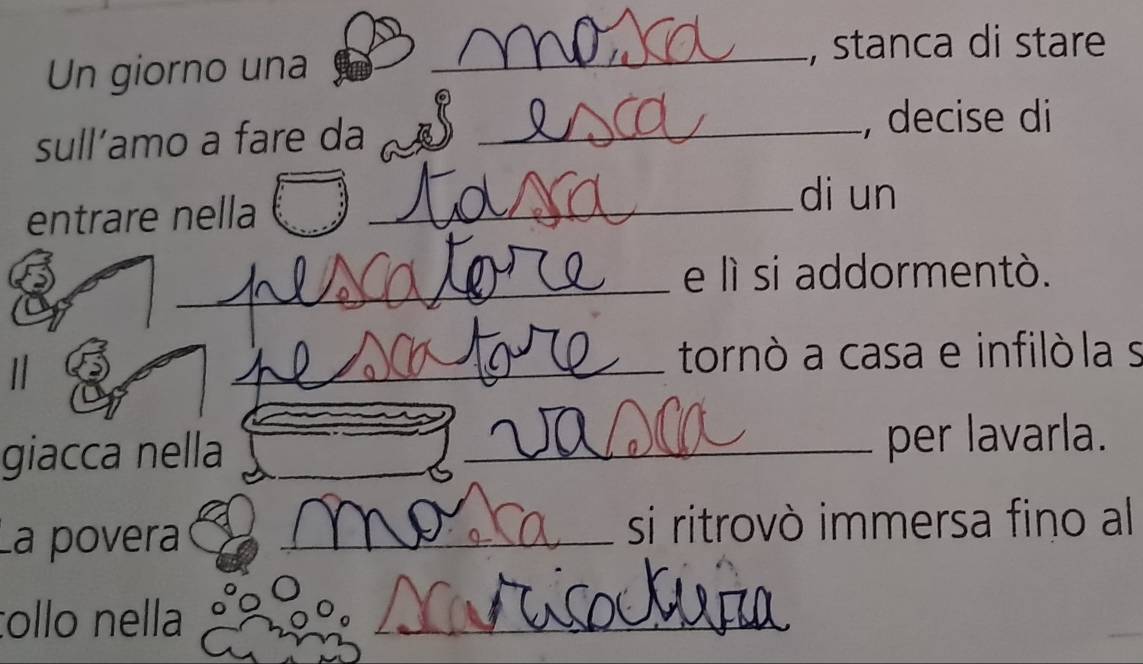 Un giorno una mosca, stanca di stare
sull'amo a fare da esca, decise di
entrare nella tasca di un
pescatore e lì si addormentò.
Il pescatore tornò a casa e infilò la s
giacca nella vasca per lavarla.
La povera mosca si ritrovò immersa fino al
collo nella